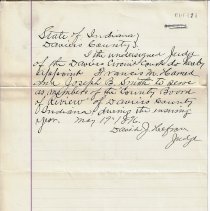 State of Indiana }
Daviess County }
I the undersigned Judge
of the Daviess Circuit Court do hereby
appoint Francis M. Harned
and Joseph B. Smith to serve
as members of the County Board
of Review of Daviess County
Indiana, during the ensuing
year May 19 189
David J. Hefron
Judge